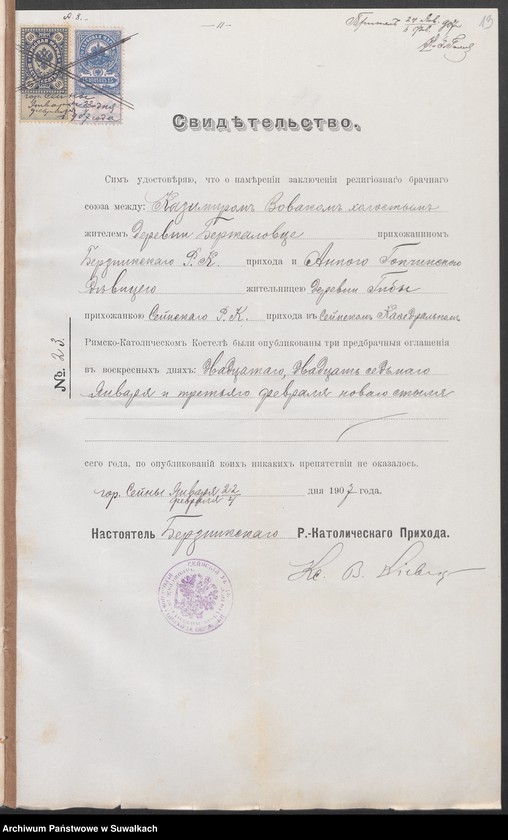 19
Свидѣтельство.
Симъ удостовѣряю, что о намѣреніи заключенія религіознаго брачнаго
союза между: Казимиромъ Вовакомъ холостымъ
жителемъ Деревни Бержаловце прихожаниномъ
Бержникскаго Р. К. прихода и Анною Гопчинскою
Дѣвицею жительницею Деревни Гибы
прихожанкою Сейнскаго Р. К. прихода въ Сейнскомъ Каѳедральномъ
Римско-Католическомъ Костелѣ были опубликованы три предбрачныя оглашенія
въ воскресныхъ дняхъ: Двадцатаго, Двадцать седьмаго
Января и третьяго февраля новаго стыля
№ 23
сего года, по опубликованій коихъ никакихъ препятствіи не оказалось.
гор. Сейны Января 22 дня 1907 года.
февраля 4
Настоятель Р.-Католическаго Прихода.
Archiwum Państwowe w Suwałkach